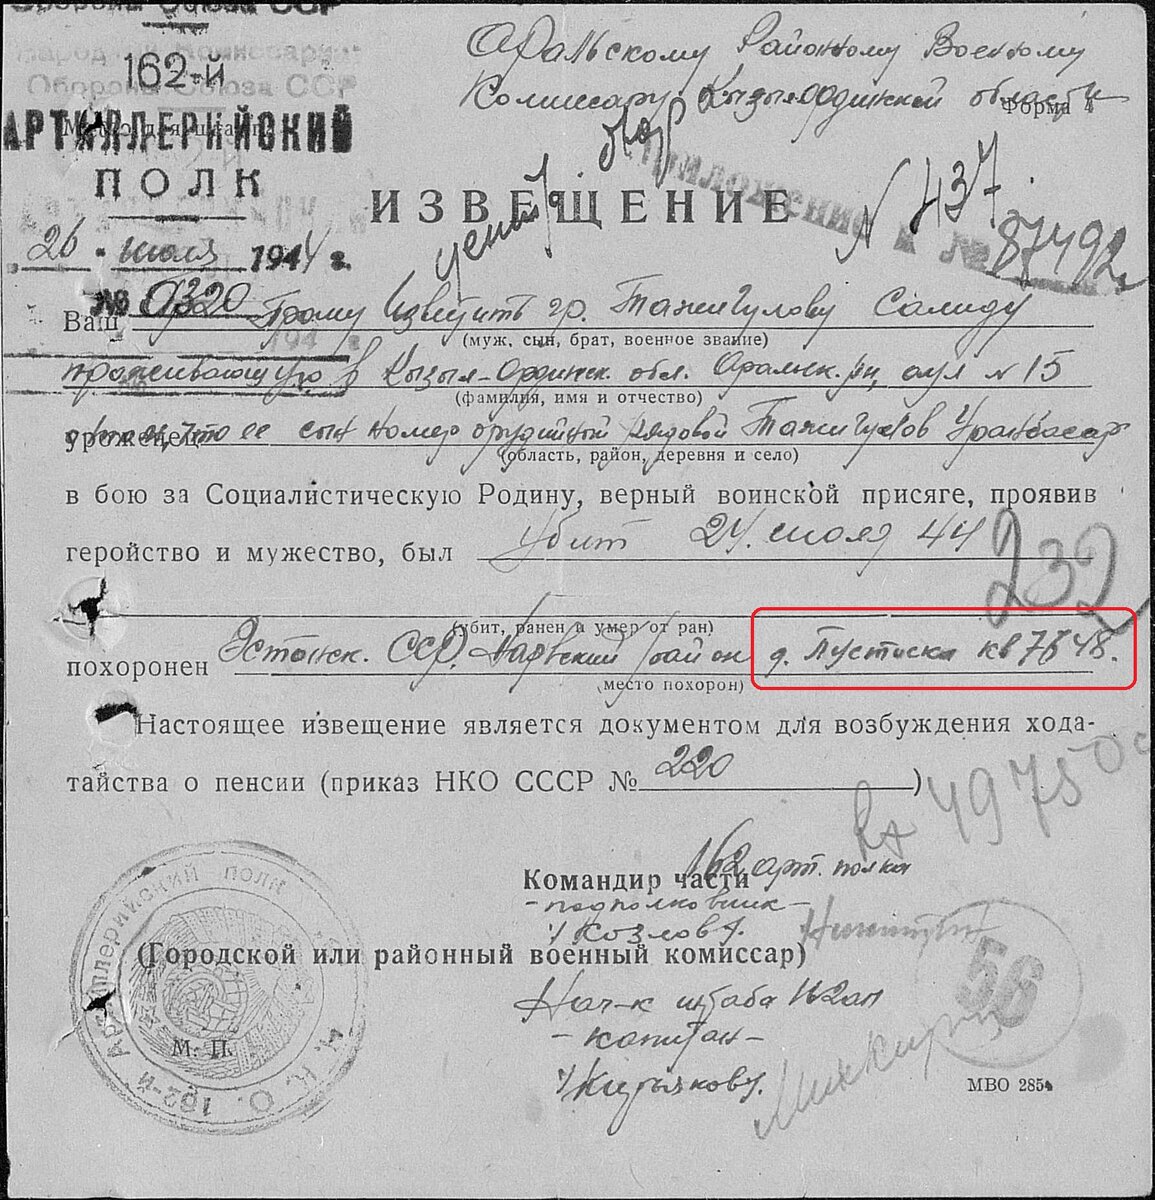 Обороны Союза ССР
Народный Комиссариат
Обороны Союза ССР
162-й
АРТИЛЛЕРИЙСКИЙ
ПОЛК
26 июля 1944 г.
№ 0320
Аральскому Районному Военному
Комиссару Кзыл-Ординской области
Форма 4
ИЗВЕЩЕНИЕ
Приложение к №
N 437
87492
Ваш Прошу Известить гр. Тажигулову Салиду
(муж, сын, брат, военное звание)
проживающую в Кзыл-Ординск. обл. Аральск. р-н, аул N 15
(фамилия, имя и отчество)
уроженец что ее сын номер орудийный рядовой Тажигулов Уранбасар
(область, район, деревня и село)
в бою за Социалистическую Родину, верный воинской присяге, проявив
геройство и мужество, был убит 24 июля 44
232
(убит, ранен и умер от ран)
похоронен Эстонск. ССР. Нарвский район д. Пустиска кв 7648.
(место похорон)
Настоящее извещение является документом для возбуждения хода-
тайства о пенсии (приказ НКО СССР № 220)
49750
162 арт. полка
Командир части
- подполковник -
/Козлов/.
(Городской или районный военный комиссар)
Нач-к штаба 162 ап
- капитан -
/Кирьяков/.
56
М. П.
162-й Артиллерийский полк
Н. К. О.
МВО 285